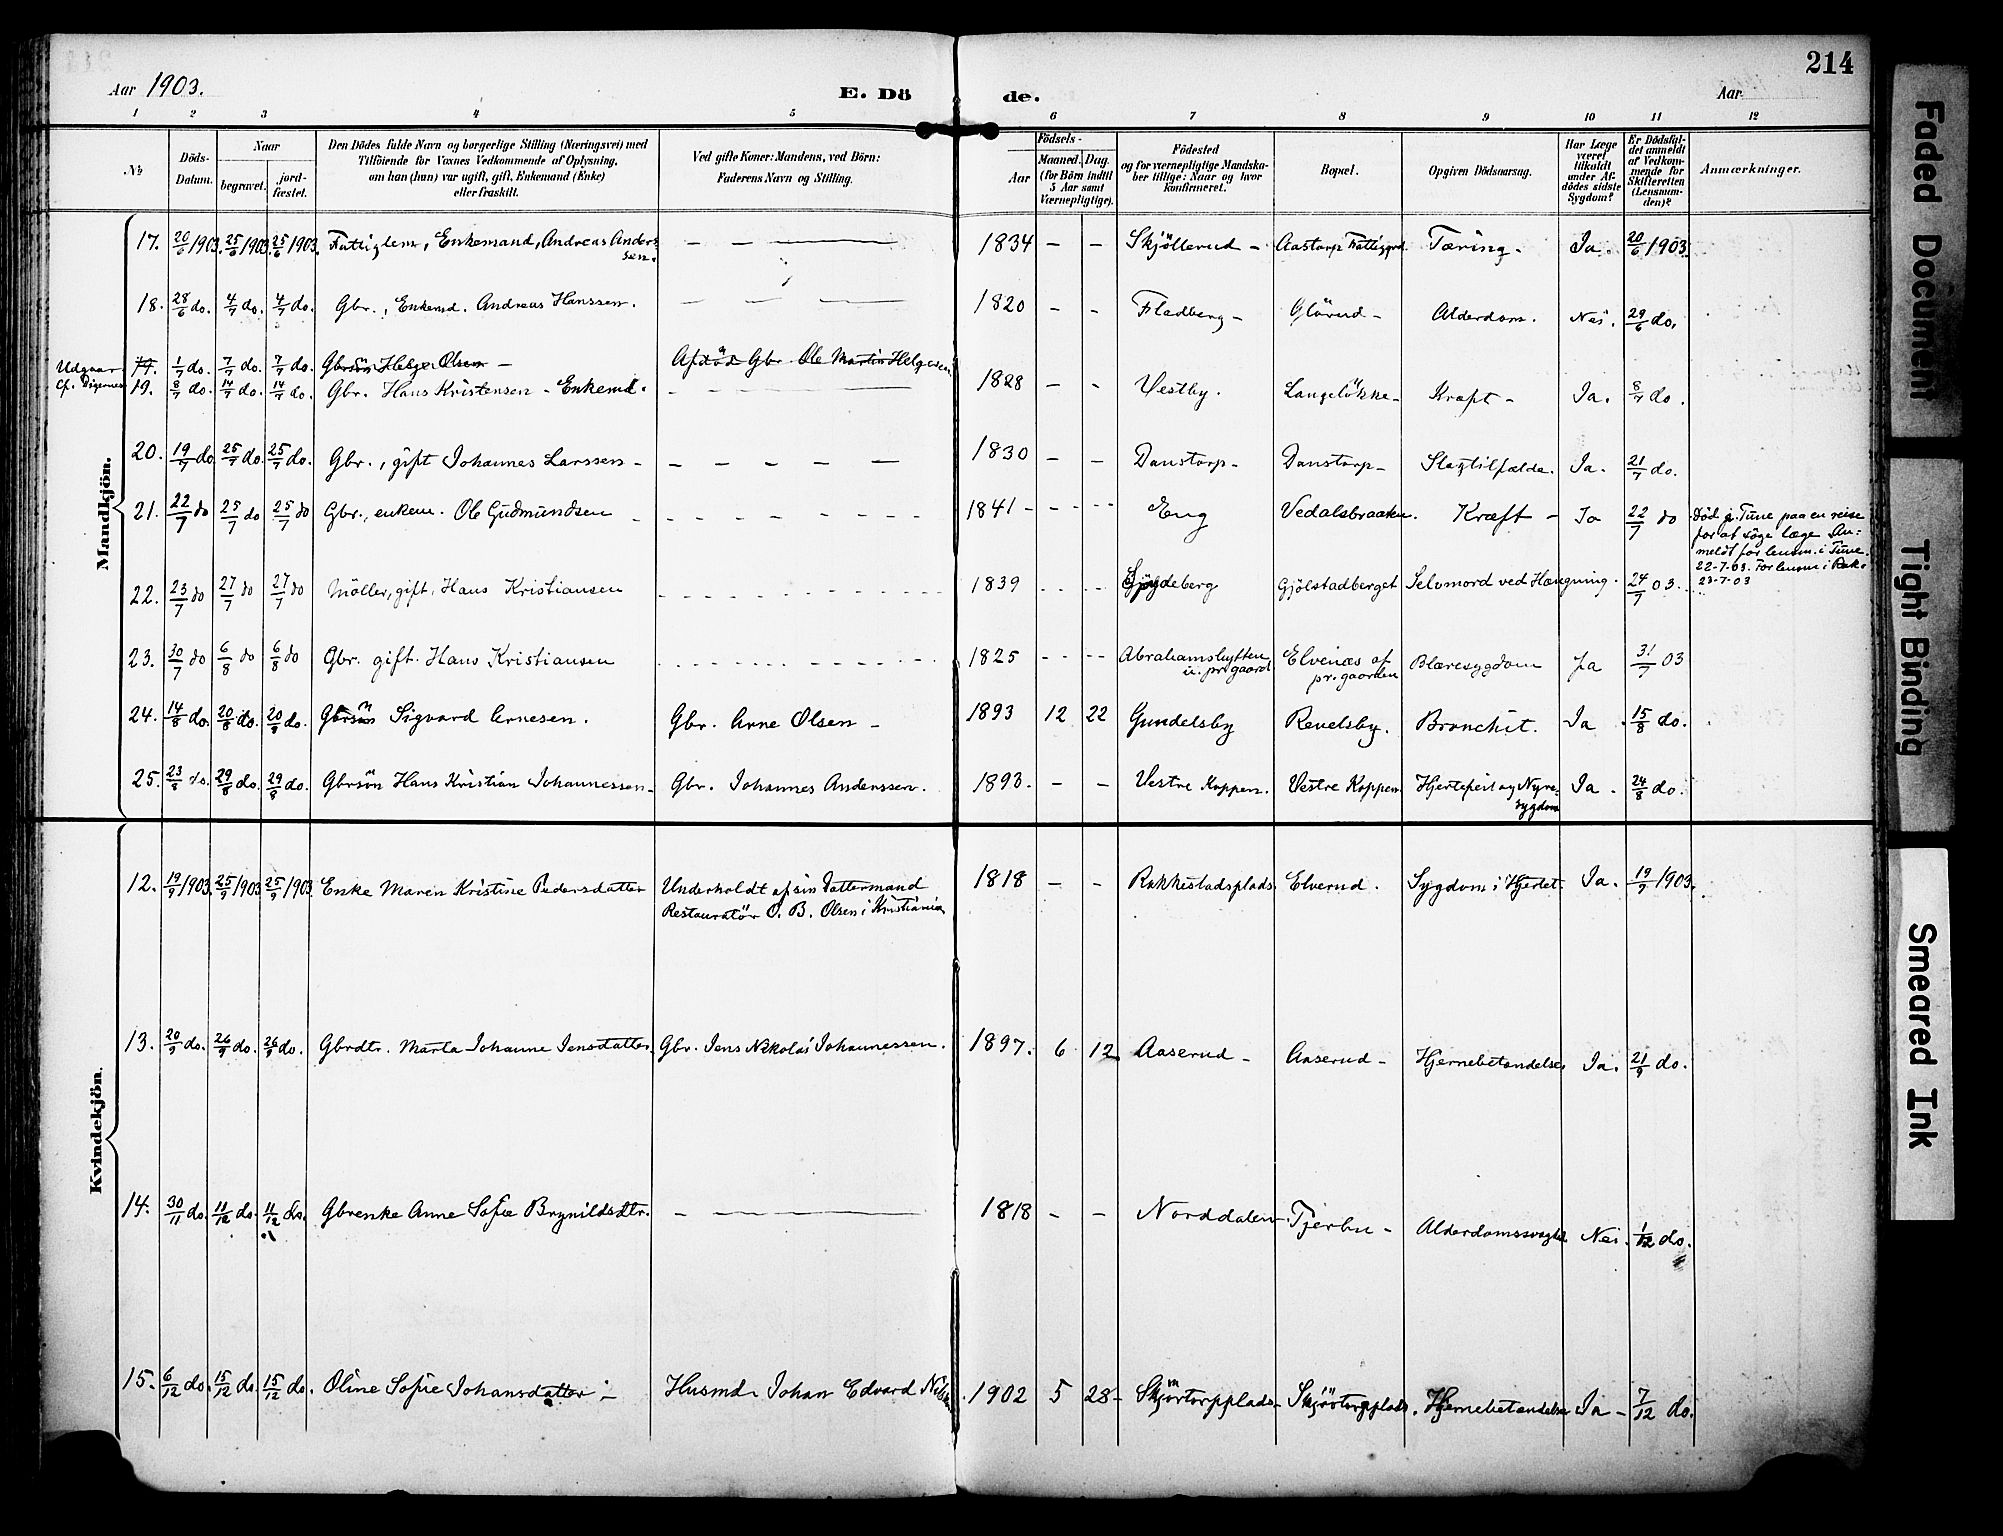 214
Aar 1903.
E. Döde.
Aar
1 2 3 4 5 6 7 8 9 10 11 12
№
Döds-Datum.
Naar
begravet.
jord-fæstet.
Den Dödes fulde Navn og borgerlige Stilling (Næringsvei) med
Tilföiende for Voxnes Vedkommende af Oplysning,
om han (hun) var ugift, gift, Enkemand (Enke)
eller fraskilt.
Ved gifte Koner: Mandens, ved Börn:
Faderens Navn og Stilling.
Födsels-
Aar
Maaned. Dag.
(for Börn indtil
5 Aar samt
Værnepligtige).
Födested
og for værnepligtige Mandska-
ber tillige: Naar og hvor
konfirmeret.
Bopæl.
Opgiven Dödsaarsag.
Har Læge
været
tilkaldt
under Af-
dödes sidste
Sygdom?
Er Dödsfal-
det anmeldt
af Vedkom-
mende for
Skifteretten
(Lensman-
den)?
Anmærkninger.
Mandkjön.
17. 20/6 1903. 25/6 1903. 25/6 1903. Fattiglem, Enkemand, Andreas Anders- — — — 1834 — — Skjöllerud — Aastorp Fattiggrd. Tæring. Ja. 20/6 1903.
sen.
18. 28/6 do. 4/7 do. 4/7 do. Gbr., Enkemd. Andreas Hanssen. — — — 1820 — — Fladberg — Glörud — Alderdom. Nei. 29/6 do.
Udgaar 19. 1/7 do. 7/7 do. 7/7 do. Gbrsön Helge Olsen — Afdöd Gbr Ole Martin Helgesen
cf. Digernes 19. 8/7 do. 14/7 do. 14/7 do. Gbr. Hans Kristensen — Enkemd. — — — 1828 — — Vestby. Langelökke — Kræft — Ja. 8/7 do.
20. 19/7 do. 25/7 do. 25/7 do. Gbr., gift Johannes Larssen — — — — — 1830 — — Danstorp — Danstorp — Slagtilfælde. Ja. 21/7 do.
21. 22/7 do 25/7 do 25/7 do Gbr., enkem. Ole Gudmundsen - - - - - 1841 - - - Eng Vedalsbraaten. Kræft — Ja 22/7 do Död i Tune paa en reise
for at söge læge An-
meldt for lensm. i Tune
22-7-03. For lensm i Rak.
23-7-03
22. 23/7 do 27/7 do 27/7 do Möller, gift, Hans Kristiansen - - - - - 1839 - - - Spydeberg Gjölstadberget Selvmord ved Hængning. 24/7 03.
23. 30/7 do 6/8 do 6/8 do Gbr. gift. Hans Kristiansen - - - - - 1825 - - - Abrahamshytten Elvenæs af Blæresygdom Ja 31/7 03
u. prgaard pr. gaarden
24. 14/8 do. 20/8 do. 20/8 do. Gbrsön Sigvard Arnesen. Gbr. Arne Olsen — 1893 12 22 Gundelsby Revelsby. Bronchit. Ja. 15/8 do.
25. 23/8 do. 29/8 do. 29/8 do. Gbrsön Hans Kristian Johannessen — Gbr. Johannes Anderssen. 1893. — — Vestre Koppen. Vestre Koppen Hjertefeil og Nyre- Ja. 24/8 do.
sygdom
Kvindekjön.
12. 19/9 1903. 25/9 1903 25/9 1903 Enke Maren Kristine Pedersdatter Underholdt af sin Dattermand 1818 — — Rakkestadsplads. Elverud. Sygdom i Hjertet. Ja. 19/9 1903.
Restauratör O. B. Olsen i Kristiania
13. 20/9 do. 26/9 do. 26/9 do. Gbrdtr. Marta Johanne Jensdatter. Gbr. Jens Nikolai Johannessen. 1897. 6 12 Aaserud — Aaserud — Hjernebetændelse. Ja. 21/9 do.
14. 30/11 do. 11/12 do. 11/12 do. Gbrenke Anne Sofie Brynildsdtr. — — — 1818 — — Norddalen — Tjerbu — Alderdomssvaghed. Nei. 1/12 do.
15. 6/12 do. 15/12 do. 15/12 do. Oline Sofie Johansdatter — Husmd. Johan Edvard Nilsen. 1902 5 28 — Skjörtorpplads — Skjörtorpplads. Hjernebetændelse Ja — 7/12 do.
Faded Document
Tight Binding
Smeared Ink